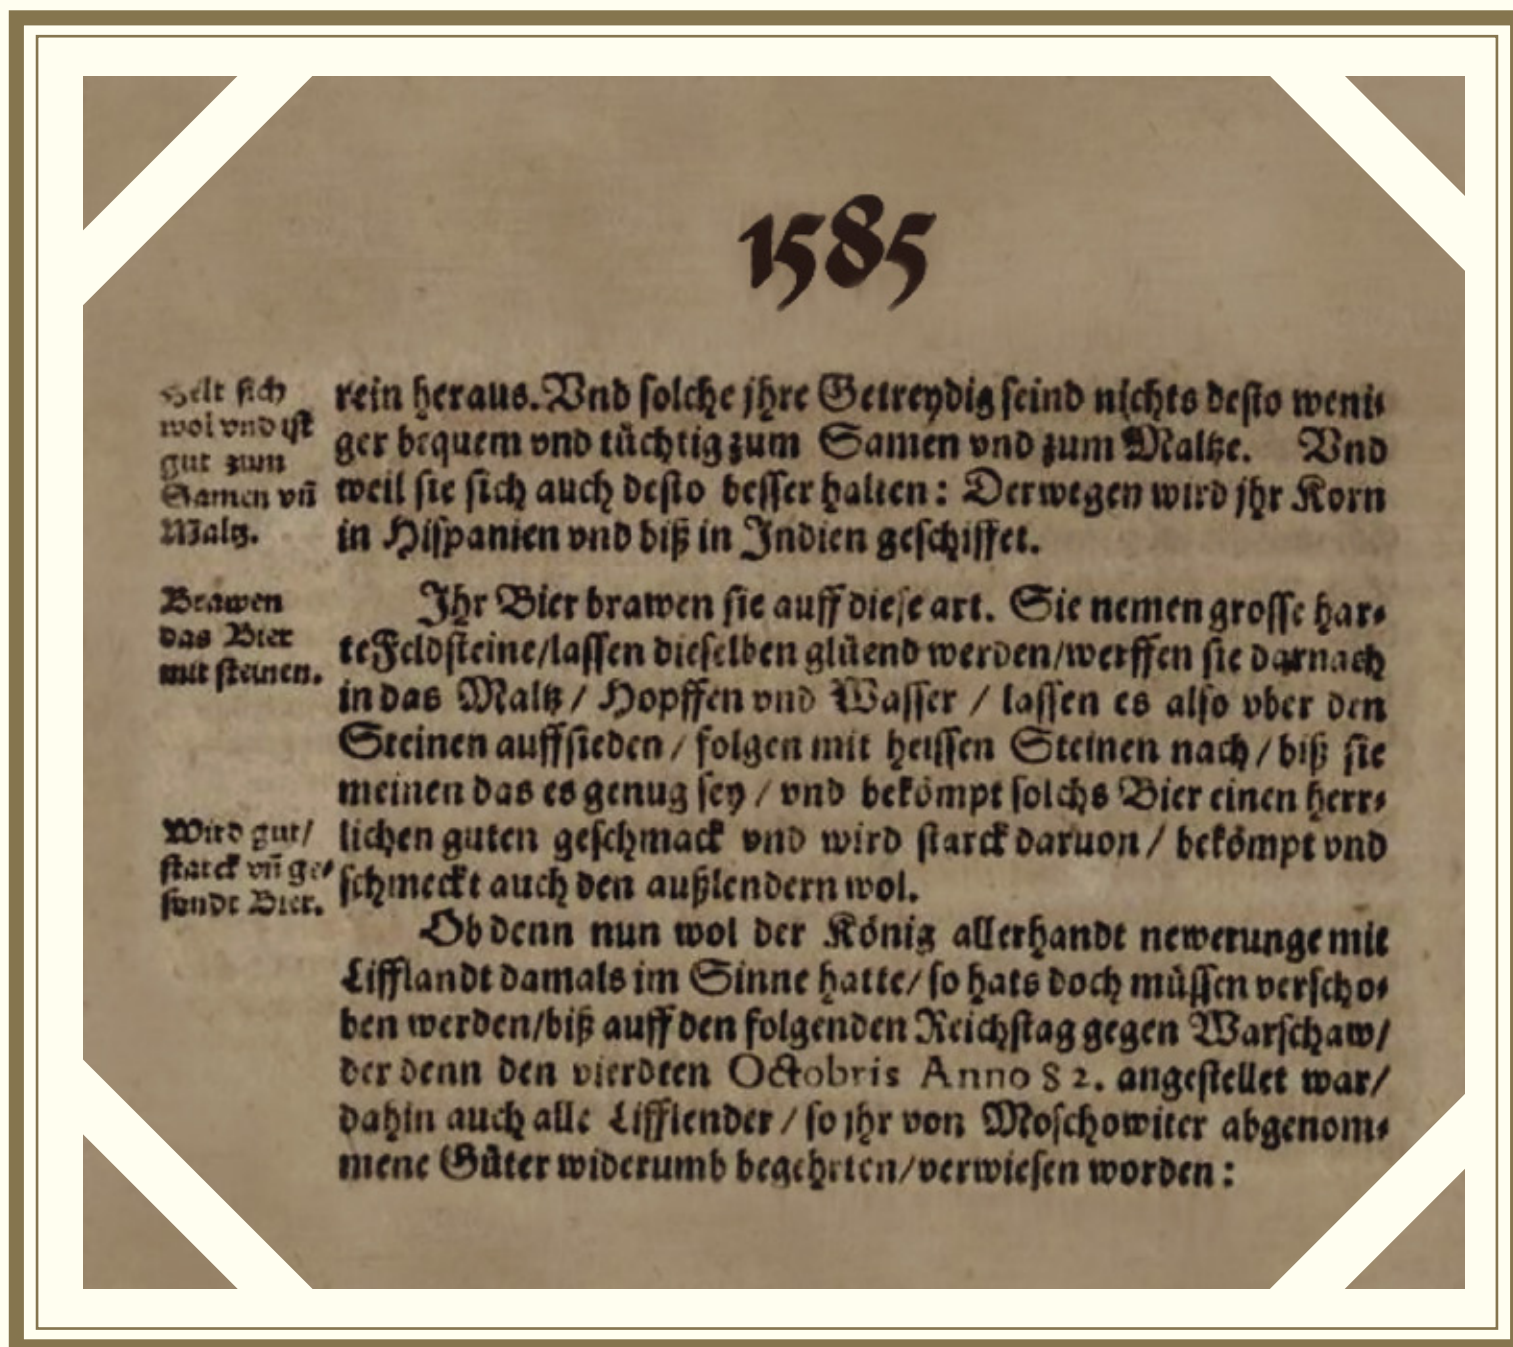 1585
Helt sich
wol vnd ist
gut zum
Samen vñ
Maltz.
rein heraus. Vnd solche jhre Getreydig seind nichts desto weni⸗
ger bequem vnd tüchtig zum Samen vnd zum Maltze. Vnd
weil sie sich auch desto besser halten: Derwegen wird jhr Korn
in Hispanien vnd biß in Indien geschiffet.
Brawen
das Bier
mit steinen.
Ihr Bier brawen sie auff diese art. Sie nemen grosse har⸗
te Feldsteine/lassen dieselben glüend werden/werffen sie darnach
in das Maltz / Hopffen vnd Wasser / lassen es also vber den
Steinen auffsieden / folgen mit heissen Steinen nach / biß sie
meinen das es genug sey / vnd bekömpt solchs Bier einen herr⸗
Wird gut/
starck vñ ge⸗
sundt Bier.
lichen guten geschmack vnd wird starck daruon / bekömpt vnd
schmeckt auch den außlendern wol.
Ob denn nun wol der König allerhandt newerunge mit
Lifflandt damals im Sinne hatte/ so hats doch müssen verscho⸗
ben werden/biß auff den folgenden Reichstag gegen Warschaw/
der denn den vierdten Octobris Anno 82. angestellet war/
dahin auch alle Lifflender / so jhr von Moschowiter abgenom⸗
mene Güter widerumb begehrten/verwiesen worden: